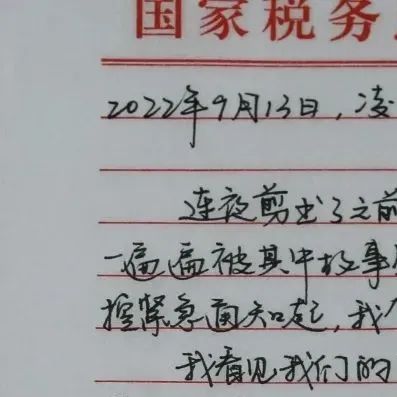 国家税务
2022年9月13日，凌
连夜剪出了之前
一遍遍被其中故事
控紧急通知起，我
我看见我们的